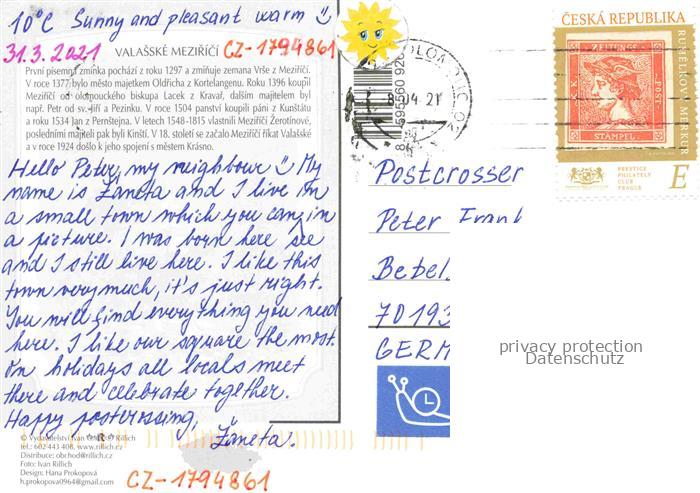 10°C Sunny and pleasant warm
31.3.2021 VALAŠSKÉ MEZIŘÍČÍ CZ-1794861
První písemná zmínka pochází z roku 1297 a zmiňuje zemana Vrše z Meziříčí.
V roce 1377 bylo město majetkem Oldřicha z Kortelangenu. Roku 1396 koupil
Meziříčí od olomouckého biskupa Lacek z Kravař, dalším majitelem byl
např. Petr od sv. Jiří a Pezinku. V roce 1504 panství koupili páni z Kunštátu
a roku 1534 Jan z Pernštejna. V letech 1548-1815 vlastnili Meziříčí Žerotínové,
posledními majiteli pak byli Kinští. V 18. století se začalo Meziříčí říkat Valašské
a v roce 1924 došlo k jeho spojení s městem Krásno.
Hello Peter, my neighbour My
name is Žaneta and I live in
a small town which you can, in
a picture. I was born here see
and I still live here. I like this
town very much, it's just right.
You will find everything you need
here. I like our square the most.
On holidays all locals meet
there and celebrate together.
Happy postcrossing,
Žaneta.
© Vydavatelství Ivan Rillich
tel.: 602 443 408, www.rillich.cz
Distribuce: obchod@rillich.cz
Foto: Ivan Rillich
Design: Hana Prokopová
h.prokopova0964@gmail.com
CZ-1794861
8 595560 920
04. 21
ČESKÁ REPUBLIKA
ZEITUNGS
POST
STAMPEL
MERKUR
PRESTIGE
PHILATELY
CLUB
PRAGUE
E
Postcrosser
Peter Frank
Bebel
70193
GERM
privacy protection
Datenschutz